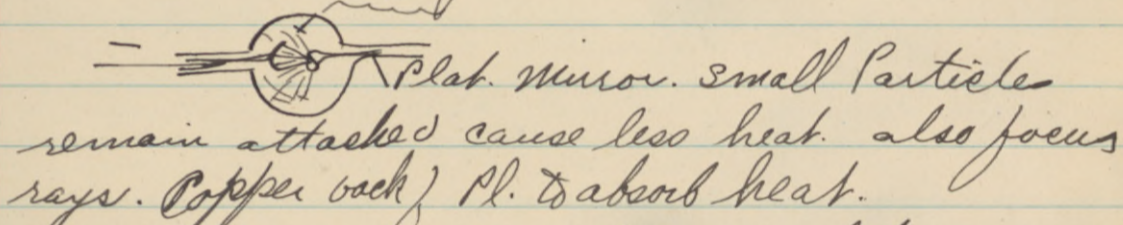 Plat. Mirror. Small Particles
remain attached cause less heat. also focus
rays. Copper back) Pl. to absorb heat.